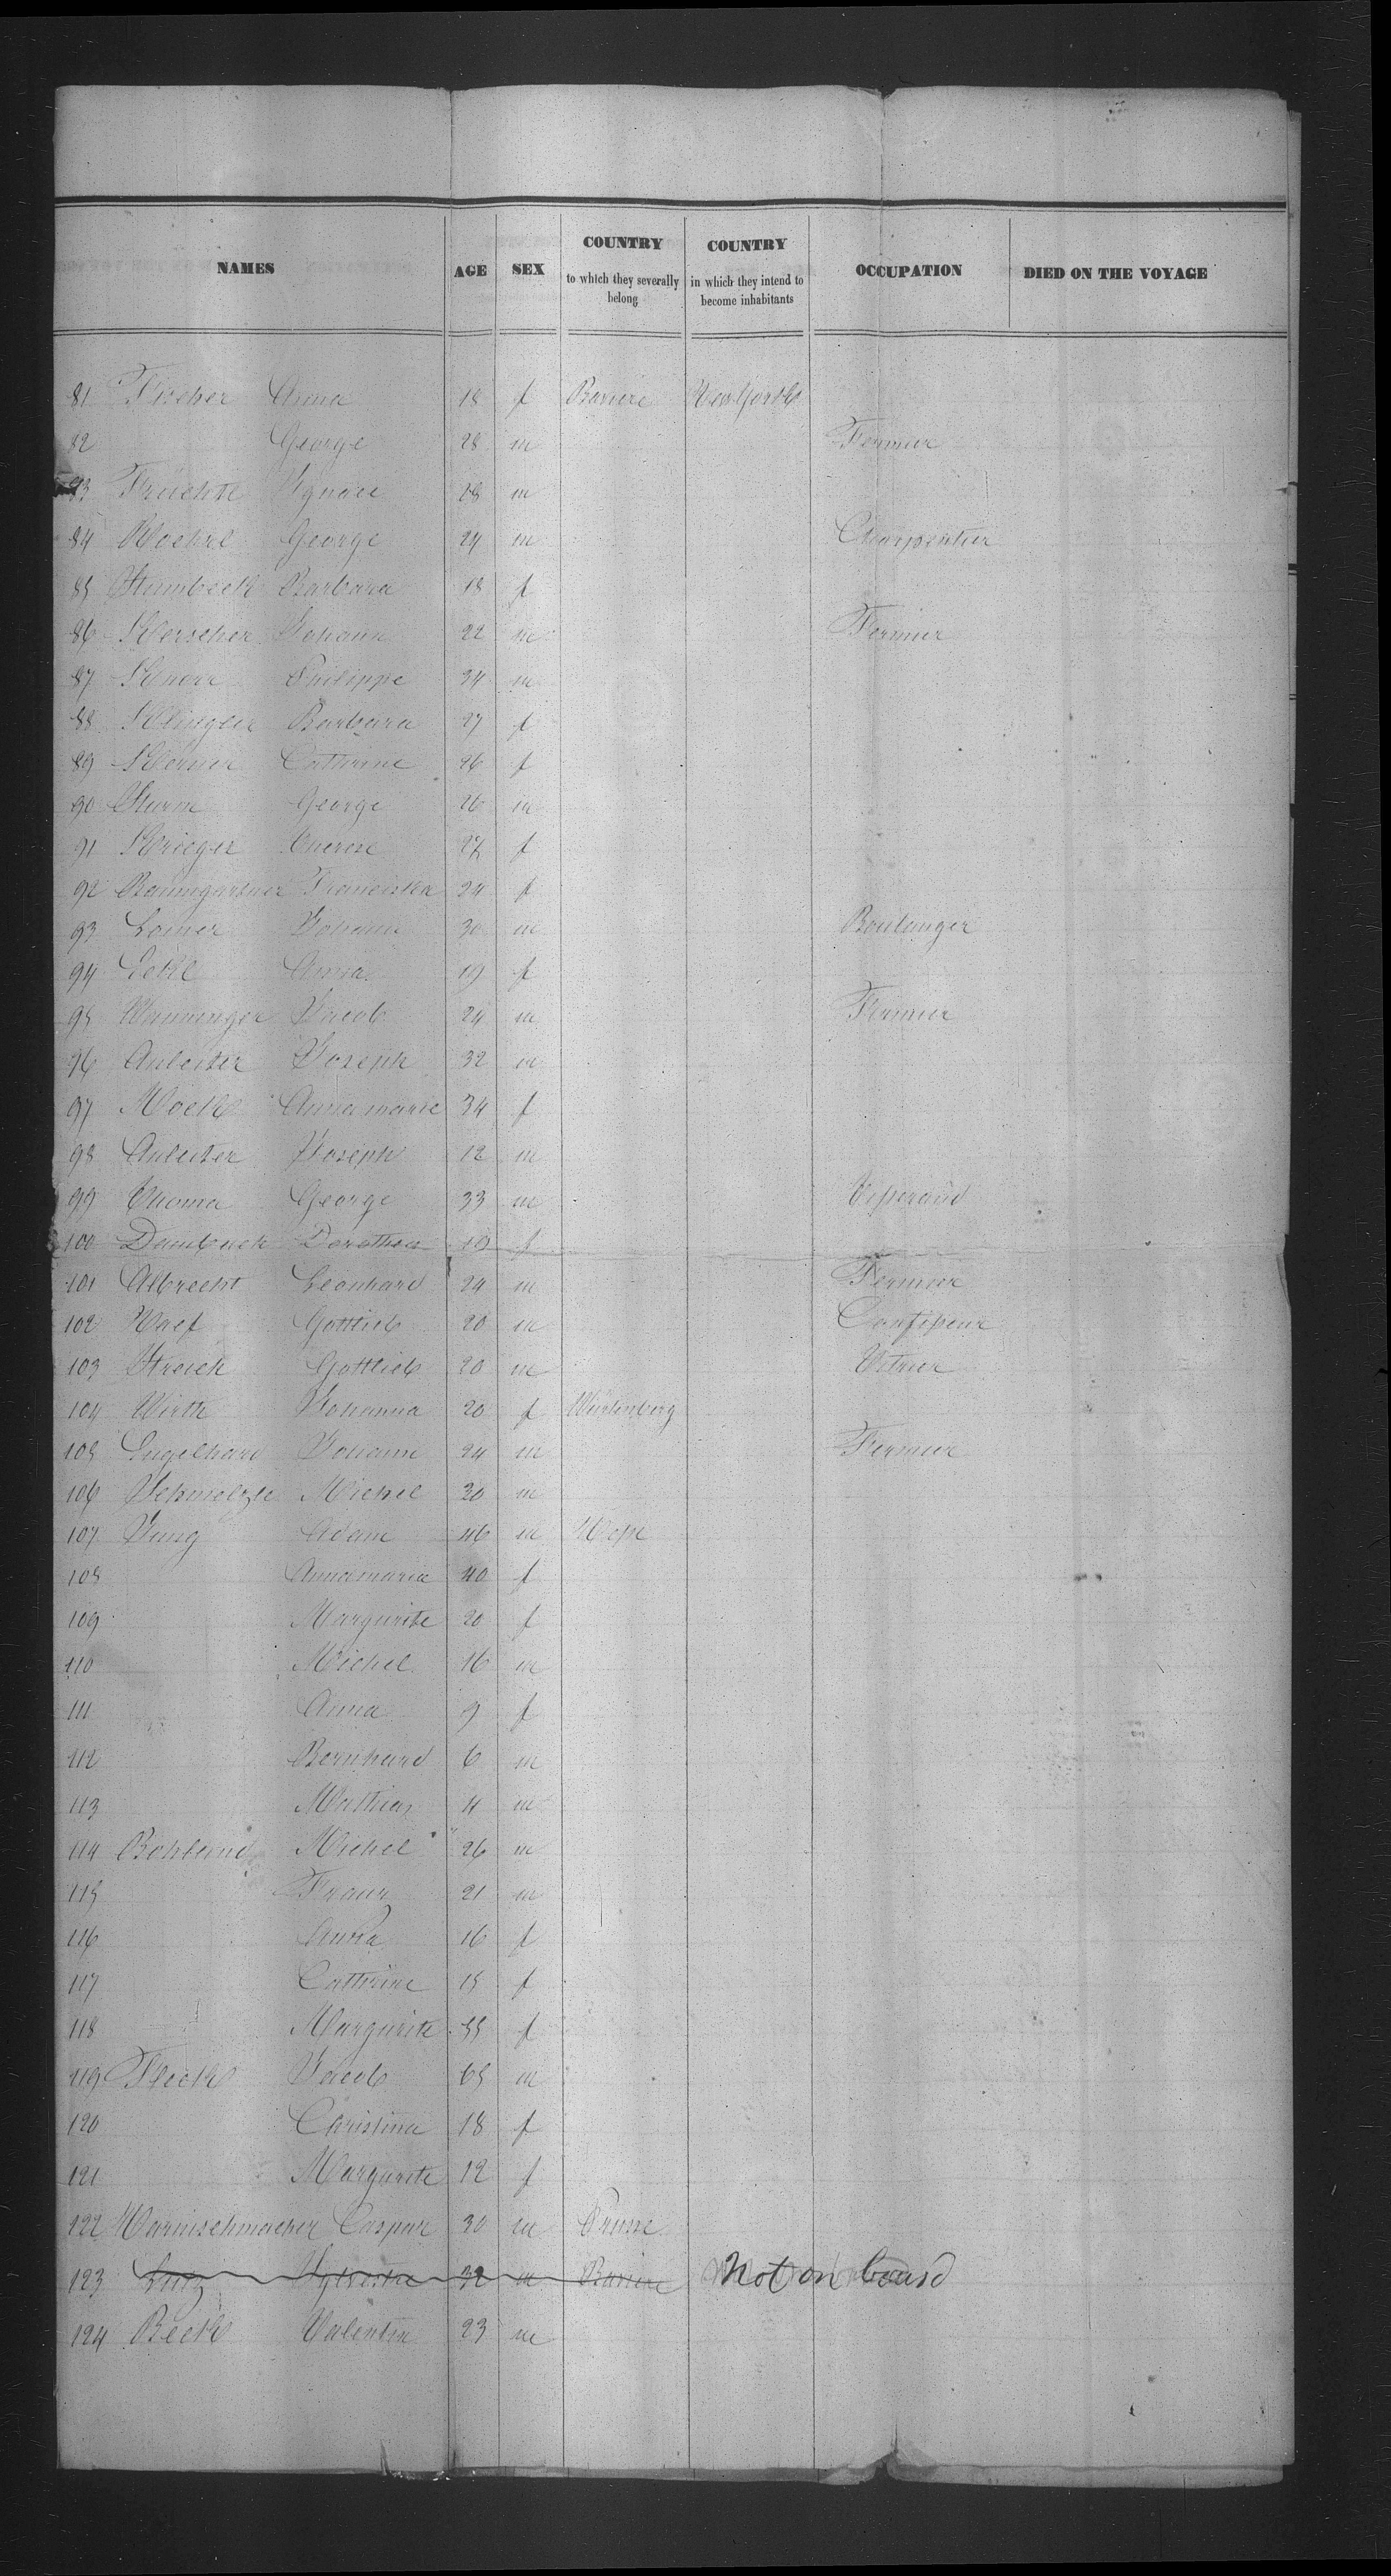 NAMES AGE SEX COUNTRY to which they severally belong COUNTRY in which they intend to become inhabitants OCCUPATION DIED ON THE VOYAGE
81 Fischer Anna 18 f Baviere New York
82 George 28 m Fermier
83 Früchtl Ignace 28 m
84 Woehrl George 24 m Charpentier
85 Stumbeck Barbara 18 f
86 Kerscher Johann 22 m Fermier
87 Knorr Philippe 34 m
88 Klingler Barbara 27 f
89 Koerner Catherine 26 f
90 Sturm George 26 m
91 Krieger Therese 27 f
92 Baumgartner Franciska 24 f
93 Loiner Johann 30 m Boulanger
94 Eckl Anna 19 f
95 Wanninger Jacob 24 m Fermier
96 Anleiter Joseph 32 m
97 Moek Annamarie 34 f
98 Anleiter Joseph 12 m
99 Thoma George 33 m Tisserand
100 Dambach Dorothea 19 f
101 Albrecht Leonhard 24 m Fermier
102 Gottlieb 20 m Confiseur
103 Streich Gottlieb 20 m Vitrier
104 Wirth Johanna 20 f Würtenberg
105 Engelhard Johann 24 m Fermier
106 Schmelzle Michel 30 m
107 Jung Adam 46 m Hesse
108 Annamaria 40 f
109 Margurite 20 f
110 Michel 16 m
111 Anna 9 f
112 Bernhard 6 m
113 Mathias 4 m
114 Michel 26 m
115 Franz 21 m
116 Anna 16 f
117 Catherine 15 f
118 Margurite 55 f
119 Fleck Jacob 65 m
120 Christina 18 f
121 Margurite 12 f
122 Harnischmacher Caspar 30 m Prusse
123 Lutz Sylvestre 32 m Baviere Not on board
124 Beck Valentin 23 m